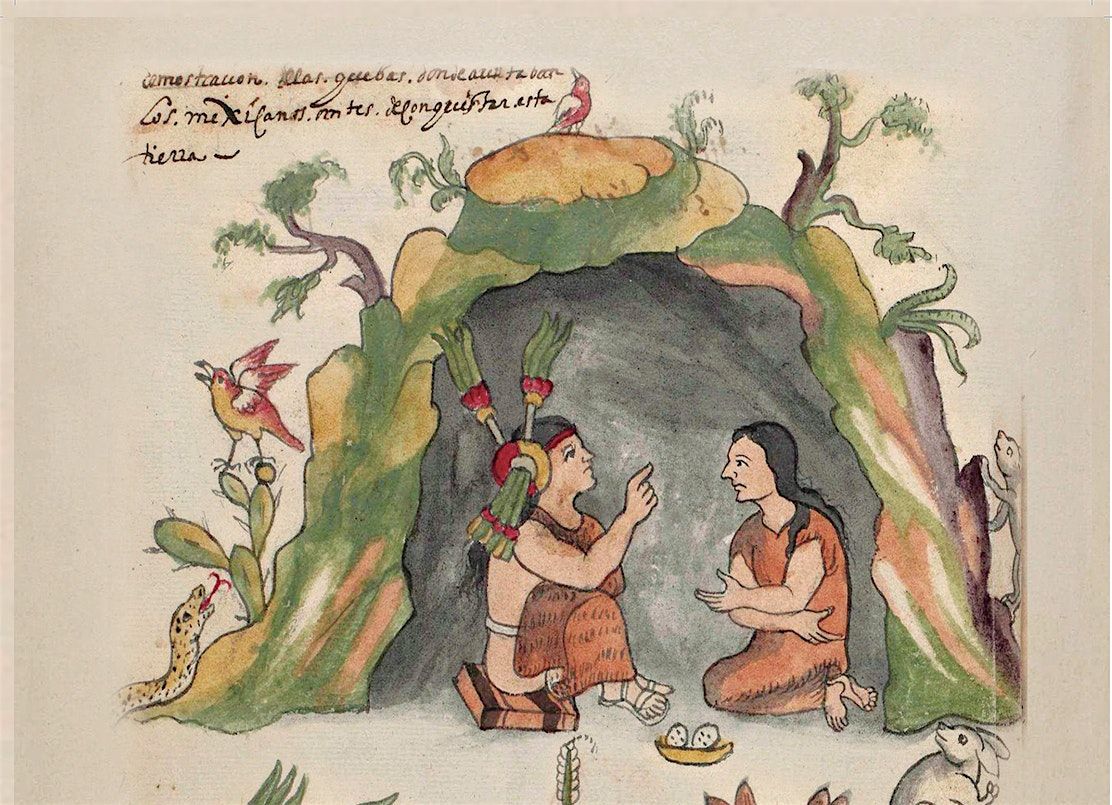 demostracion. delas. quebas. donde auitaban
Los. mexicanos. antes. deconquistar. esta
tierra